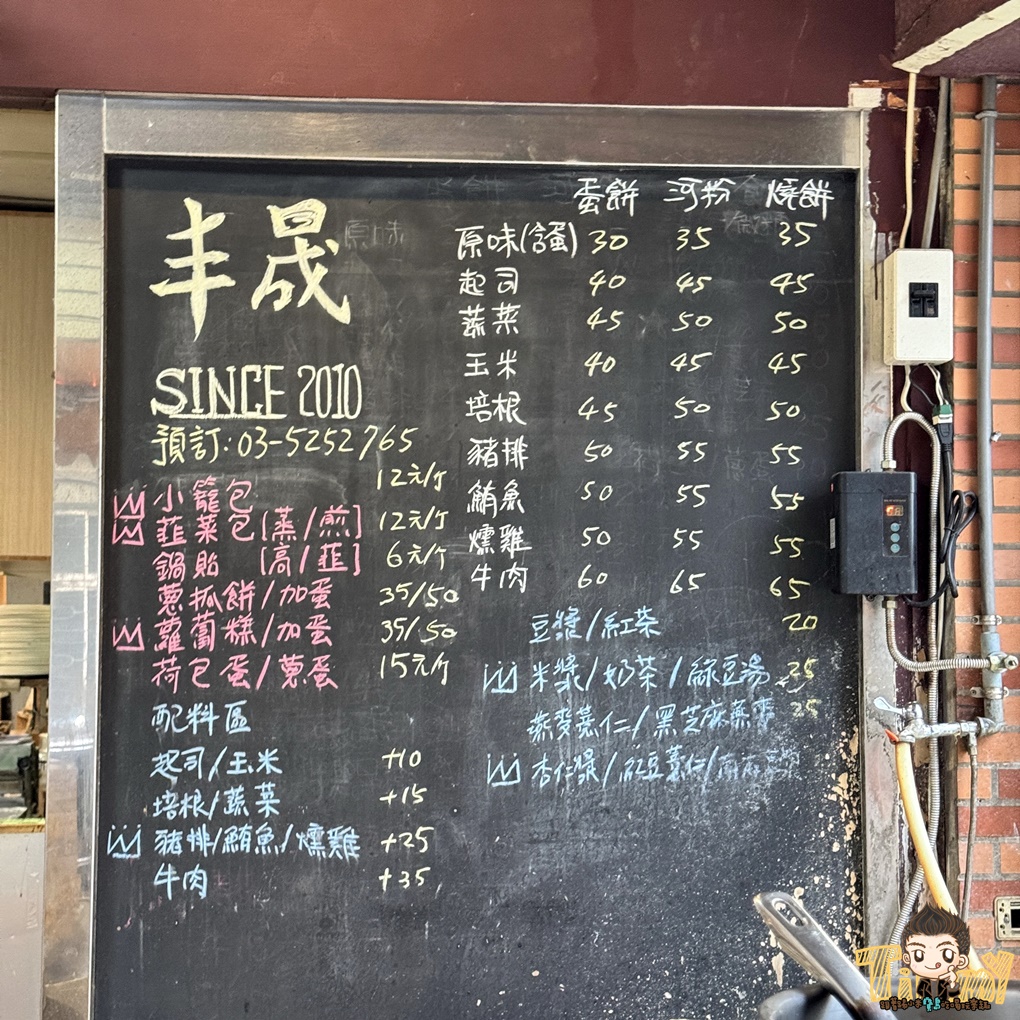 丰晟
SINCE 2010
預訂:03-5252765
小籠包 12元/个
韮菜包[蒸/煎] 12元/个
鍋貼 [高/韮] 6元/个
蔥抓餅/加蛋 35/50
蘿蔔糕/加蛋 35/50
荷包蛋/蔥蛋 15元/个
配料區
起司/玉米 +10
培根/蔬菜 +15
豬排/鮪魚/燻雞 +25
牛肉 +35
蛋餅 河粉 燒餅
原味(含蛋) 30 35 35
起司 40 45 45
蔬菜 45 50 50
玉米 40 45 45
培根 45 50 50
豬排 50 55 55
鮪魚 50 55 55
燻雞 50 55 55
牛肉 60 65 65
豆漿/紅茶 20
米漿/奶茶/綠豆湯 25
燕麥薏仁/黑芝麻燕麥 25
杏仁漿/紅豆薏仁/
原味